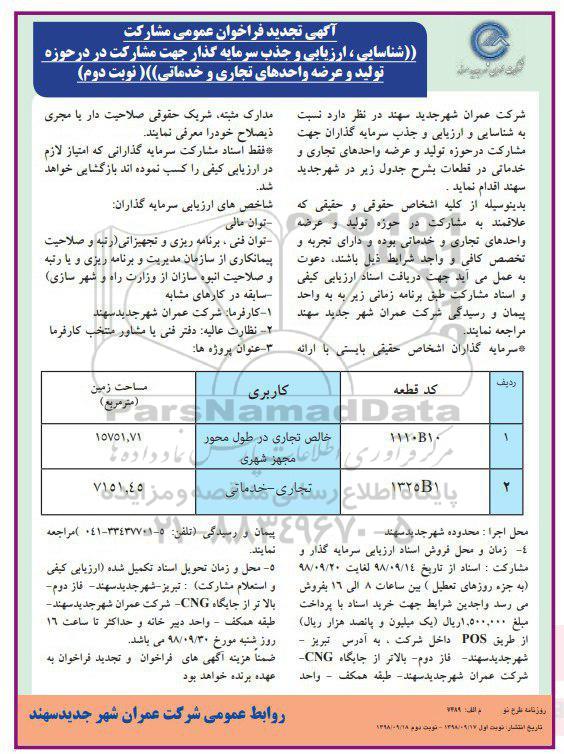 آگهی تجدید فراخوان عمومی مشارکت
((شناسایی ، ارزیابی و جذب سرمایه گذار جهت مشارکت در درحوزه
تولید و عرضه واحدهای تجاری و خدماتی))( نوبت دوم)
شرکت عمران شهرجدید سهند در نظر دارد نسبت
به شناسایی و ارزیابی و جذب سرمایه گذاران جهت
مشارکت درحوزه تولید و عرضه واحدهای تجاری و
خدماتی در قطعات بشرح جدول زیر در شهرجدید
سهند اقدام نماید .
بدینوسیله از کلیه اشخاص حقوقی و حقیقی که
علاقمند به مشارکت در حوزه تولید و عرضه
واحدهای تجاری و خدماتی بوده و دارای تجربه و
تخصص کافی و واجد شرایط ذیل باشند، دعوت
به عمل می آید جهت دریافت اسناد ارزیابی کیفی
و اسناد مشارکت طبق برنامه زمانی زیر به به واحد
پیمان و رسیدگی شرکت عمران شهر جدید سهند
مراجعه نمایند.
*سرمایه گذاران اشخاص حقیقی بایستی با ارائه
مدارک مثبته، شریک حقوقی صلاحیت دار یا مجری
ذیصلاح خودرا معرفی نمایند.
*فقط اسناد مشارکت سرمایه گذارانی که امتیاز لازم
در ارزیابی کیفی را کسب نموده اند بازگشایی خواهد
شد.
شاخص های ارزیابی سرمایه گذاران:
-توان مالی
-توان فنی ، برنامه ریزی و تجهیزاتی(رتبه و صلاحیت
پیمانکاری از سازمان مدیریت و برنامه ریزی و یا رتبه
و صلاحیت انبوه سازان از وزارت راه و شهر سازی)
-سابقه در کارهای مشابه
۱-کارفرما: شرکت عمران شهرجدیدسهند
۲- نظارت عالیه: دفتر فنی یا مشاور منتخب کارفرما
۳-عنوان پروژه ها:
ردیف کد قطعه کاربری مساحت زمین
(مترمربع)
۱ ۱۱۱۰B۱۰ خالص تجاری در طول محور ۱۵۷۵۱,۷۱
مجهز شهری
۲ ۱۳۲۵B۱ تجاری-خدماتی ۷۱۵۱,۴۵
ParsNamadData
پایگاه اطلاع رسانی مناقصه و مزایده
۰۲۱-۸۸۳۴۹۶۷۰-۵
محل اجرا : محدوده شهرجدیدسهند
۴- زمان و محل فروش اسناد ارزیابی سرمایه گذار و
مشارکت : اسناد از تاریخ ۹۸/۰۹/۱۴ لغایت ۹۸/۰۹/۲۰
(به جزء روزهای تعطیل ) بین ساعات ۸ الی ۱۶ بفروش
می رسد واجدین شرایط جهت خرید اسناد با پرداخت
مبلغ ۱,۵۰۰,۰۰۰ریال (یک میلیون و پانصد هزار ریال)
از طریق POS داخل شرکت ، به آدرس تبریز -
شهرجدیدسهند- فاز دوم- بالاتر از جایگاه CNG-
شرکت عمران شهرجدیدسهند- طبقه همکف - واحد
پیمان و رسیدگی (تلفن: ۵-۳۳۴۳۷۷۰۱-۰۴۱ )مراجعه
نمایند.
۵- محل و زمان تحویل اسناد تکمیل شده (ارزیابی کیفی
و استعلام مشارکت) : تبریز-شهرجدیدسهند- فاز دوم-
بالا تر از جایگاه CNG- شرکت عمران شهرجدیدسهند-
طبقه همکف - واحد دبیر خانه و حداکثر تا ساعت ۱۶
روز شنبه مورخ ۹۸/۰۹/۳۰ می باشد.
ضمناً هزینه آگهی های فراخوان و تجدید فراخوان به
عهده برنده خواهد بود
روزنامه طرح نو م الف: ۷۳۸۹
تاریخ انتشار: نوبت اول ۱۳۹۸/۰۹/۱۷ - نوبت دوم ۱۳۹۸/۰۹/۱۸
روابط عمومی شرکت عمران شهر جدیدسهند